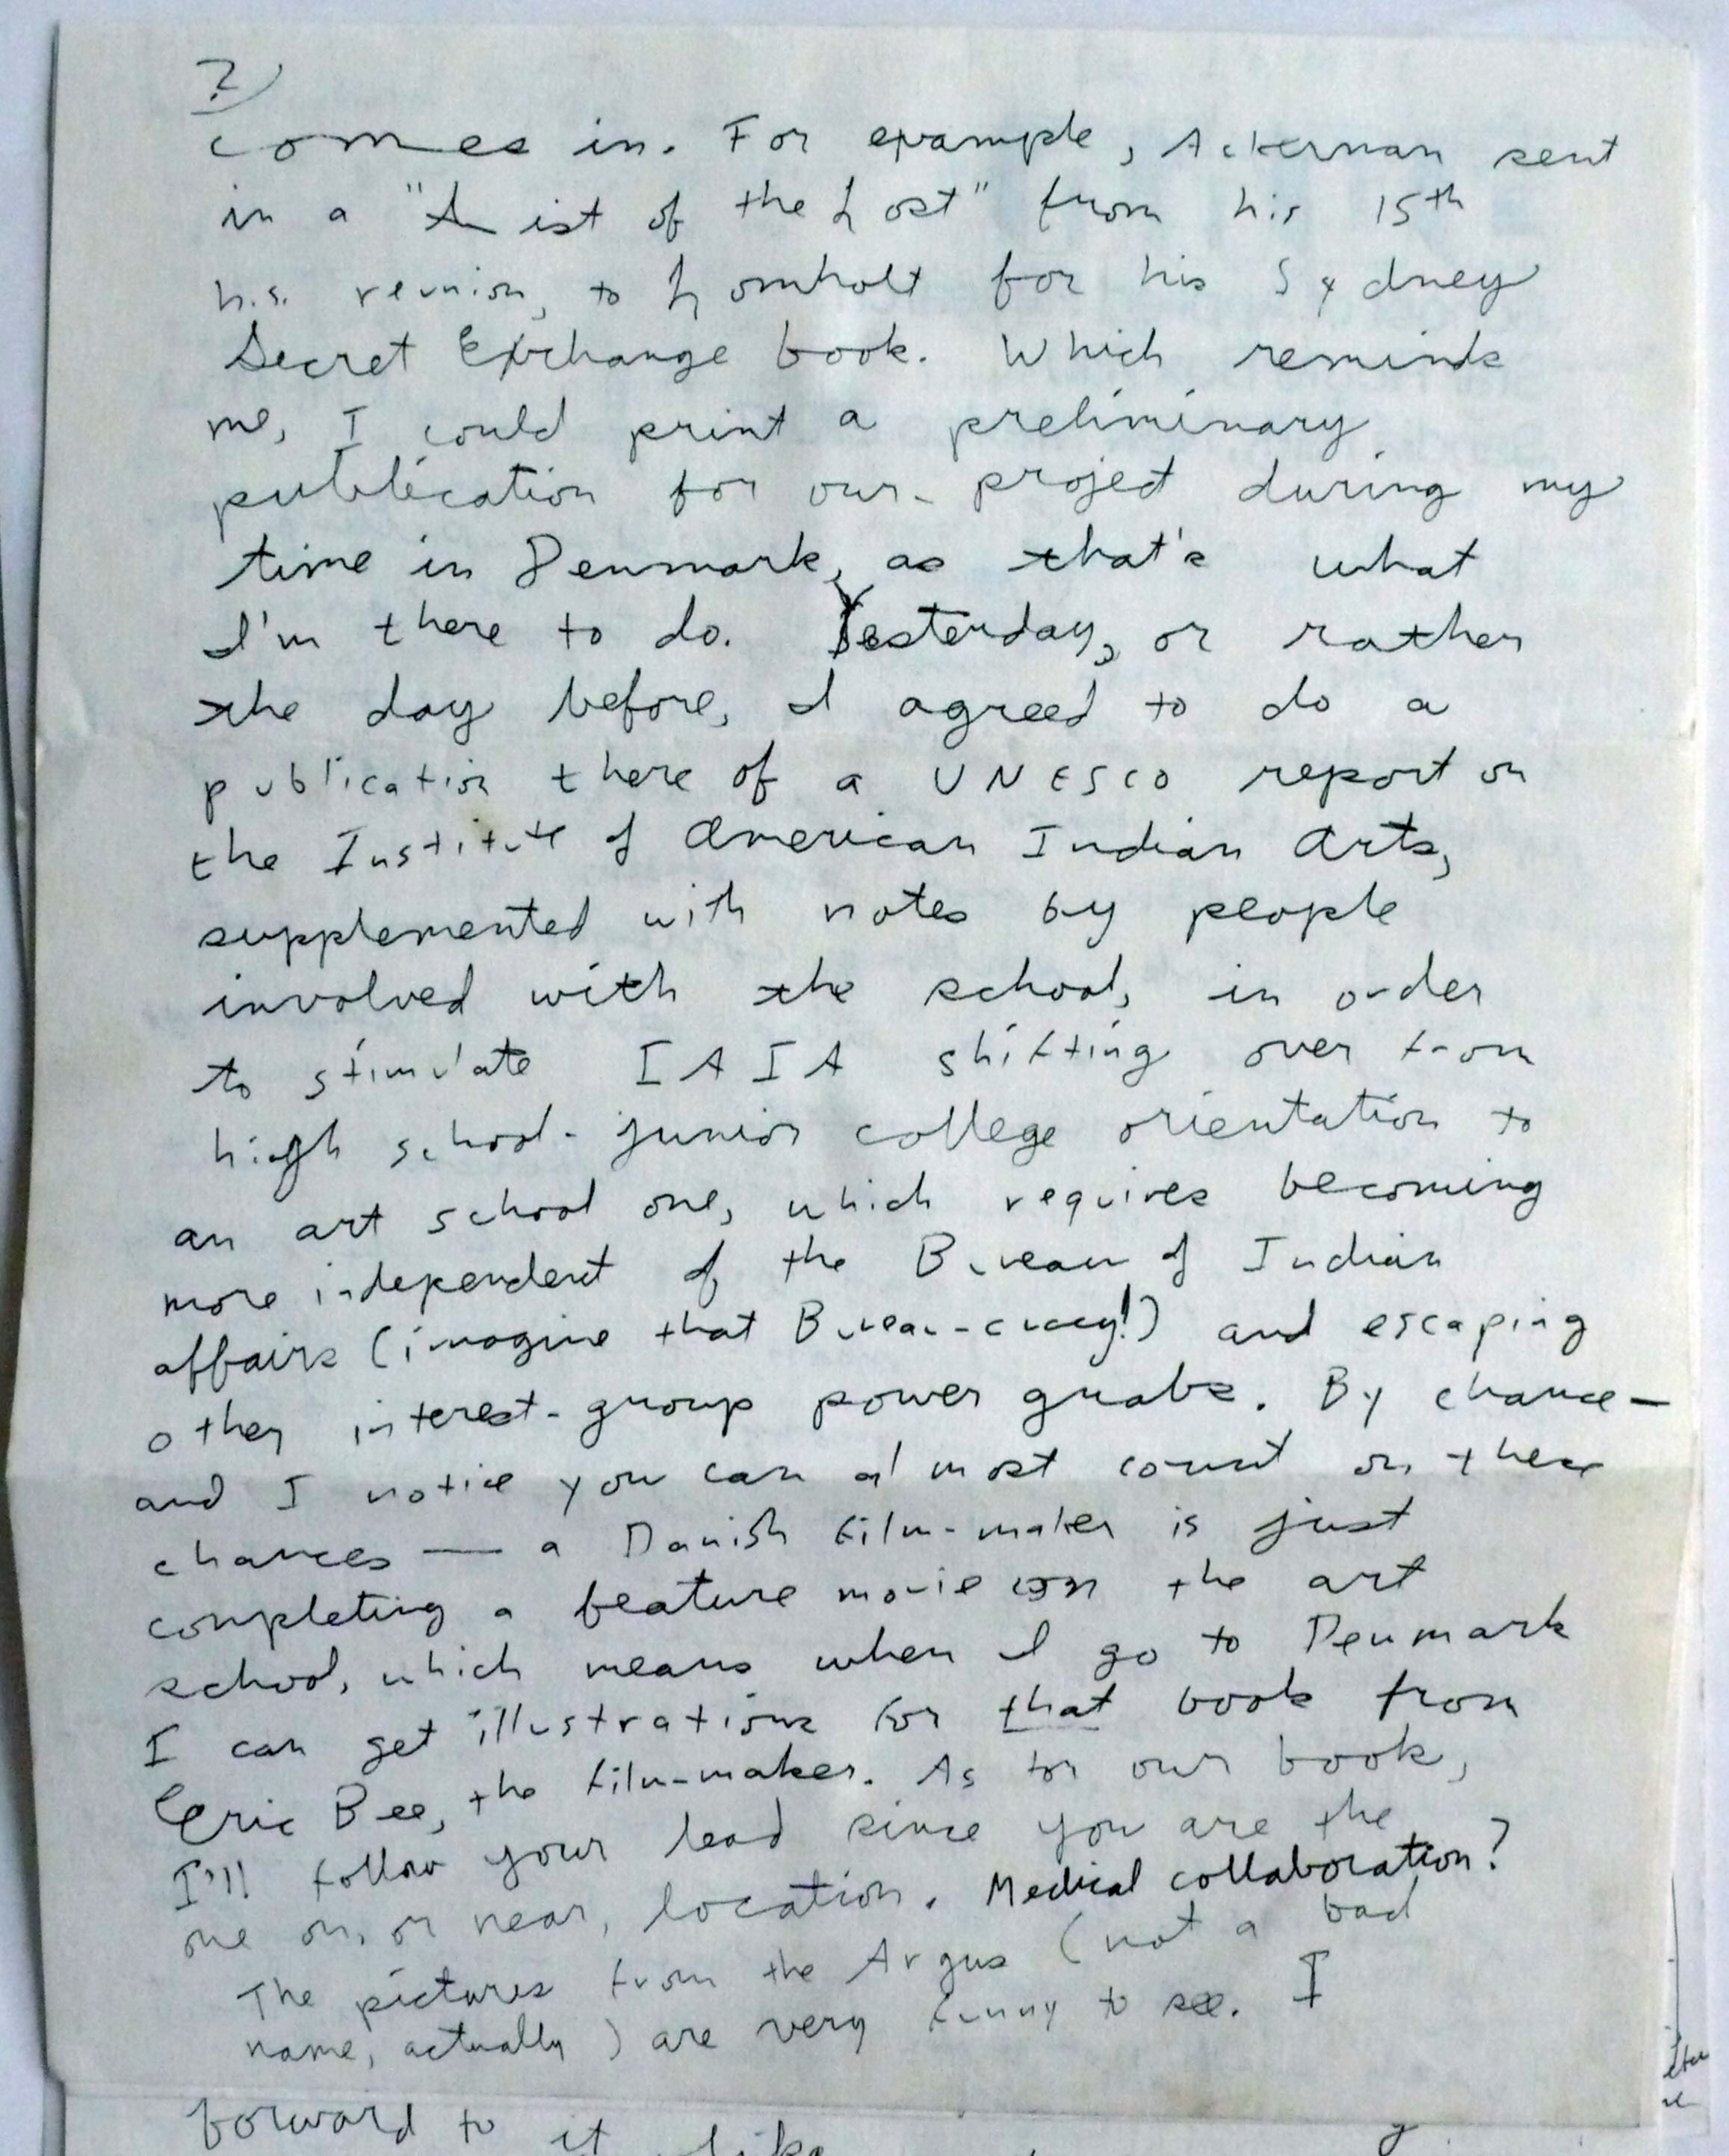 2)
comes in. For example, Ackerman sent
in a "List of the Lost" from his 15th
h.s. reunion, to Lomholt for his Sydney
Secret Exchange book. Which reminds
me, I could print a preliminary
publication for our project during my
time in Denmark, as that's what
I'm there to do. Yesterday, or rather
the day before, I agreed to do a
publication there of a UNESCO report on
the Institute of American Indian Arts,
supplemented with notes by people
involved with the school, in order
to stimulate IAIA shifting over from
high school-junior college orientation to
an art school one, which requires becoming
more independent of the Bureau of Indian
affairs (imagine that Bureau-cracy!) and escaping
other interest-group power grabs. By chance—
and I notice you can almost count on these
chances — a Danish film-maker is just
completing a feature movie on the art
school, which means when I go to Denmark
I can get illustrations for that book from
Eric Bee, the film-maker. As for our book,
I'll follow your lead since you are the
one on, or near, location. Medical collaboration?
The pictures from the Argus (not a bad
name, actually) are very funny to see. I
forward to it like